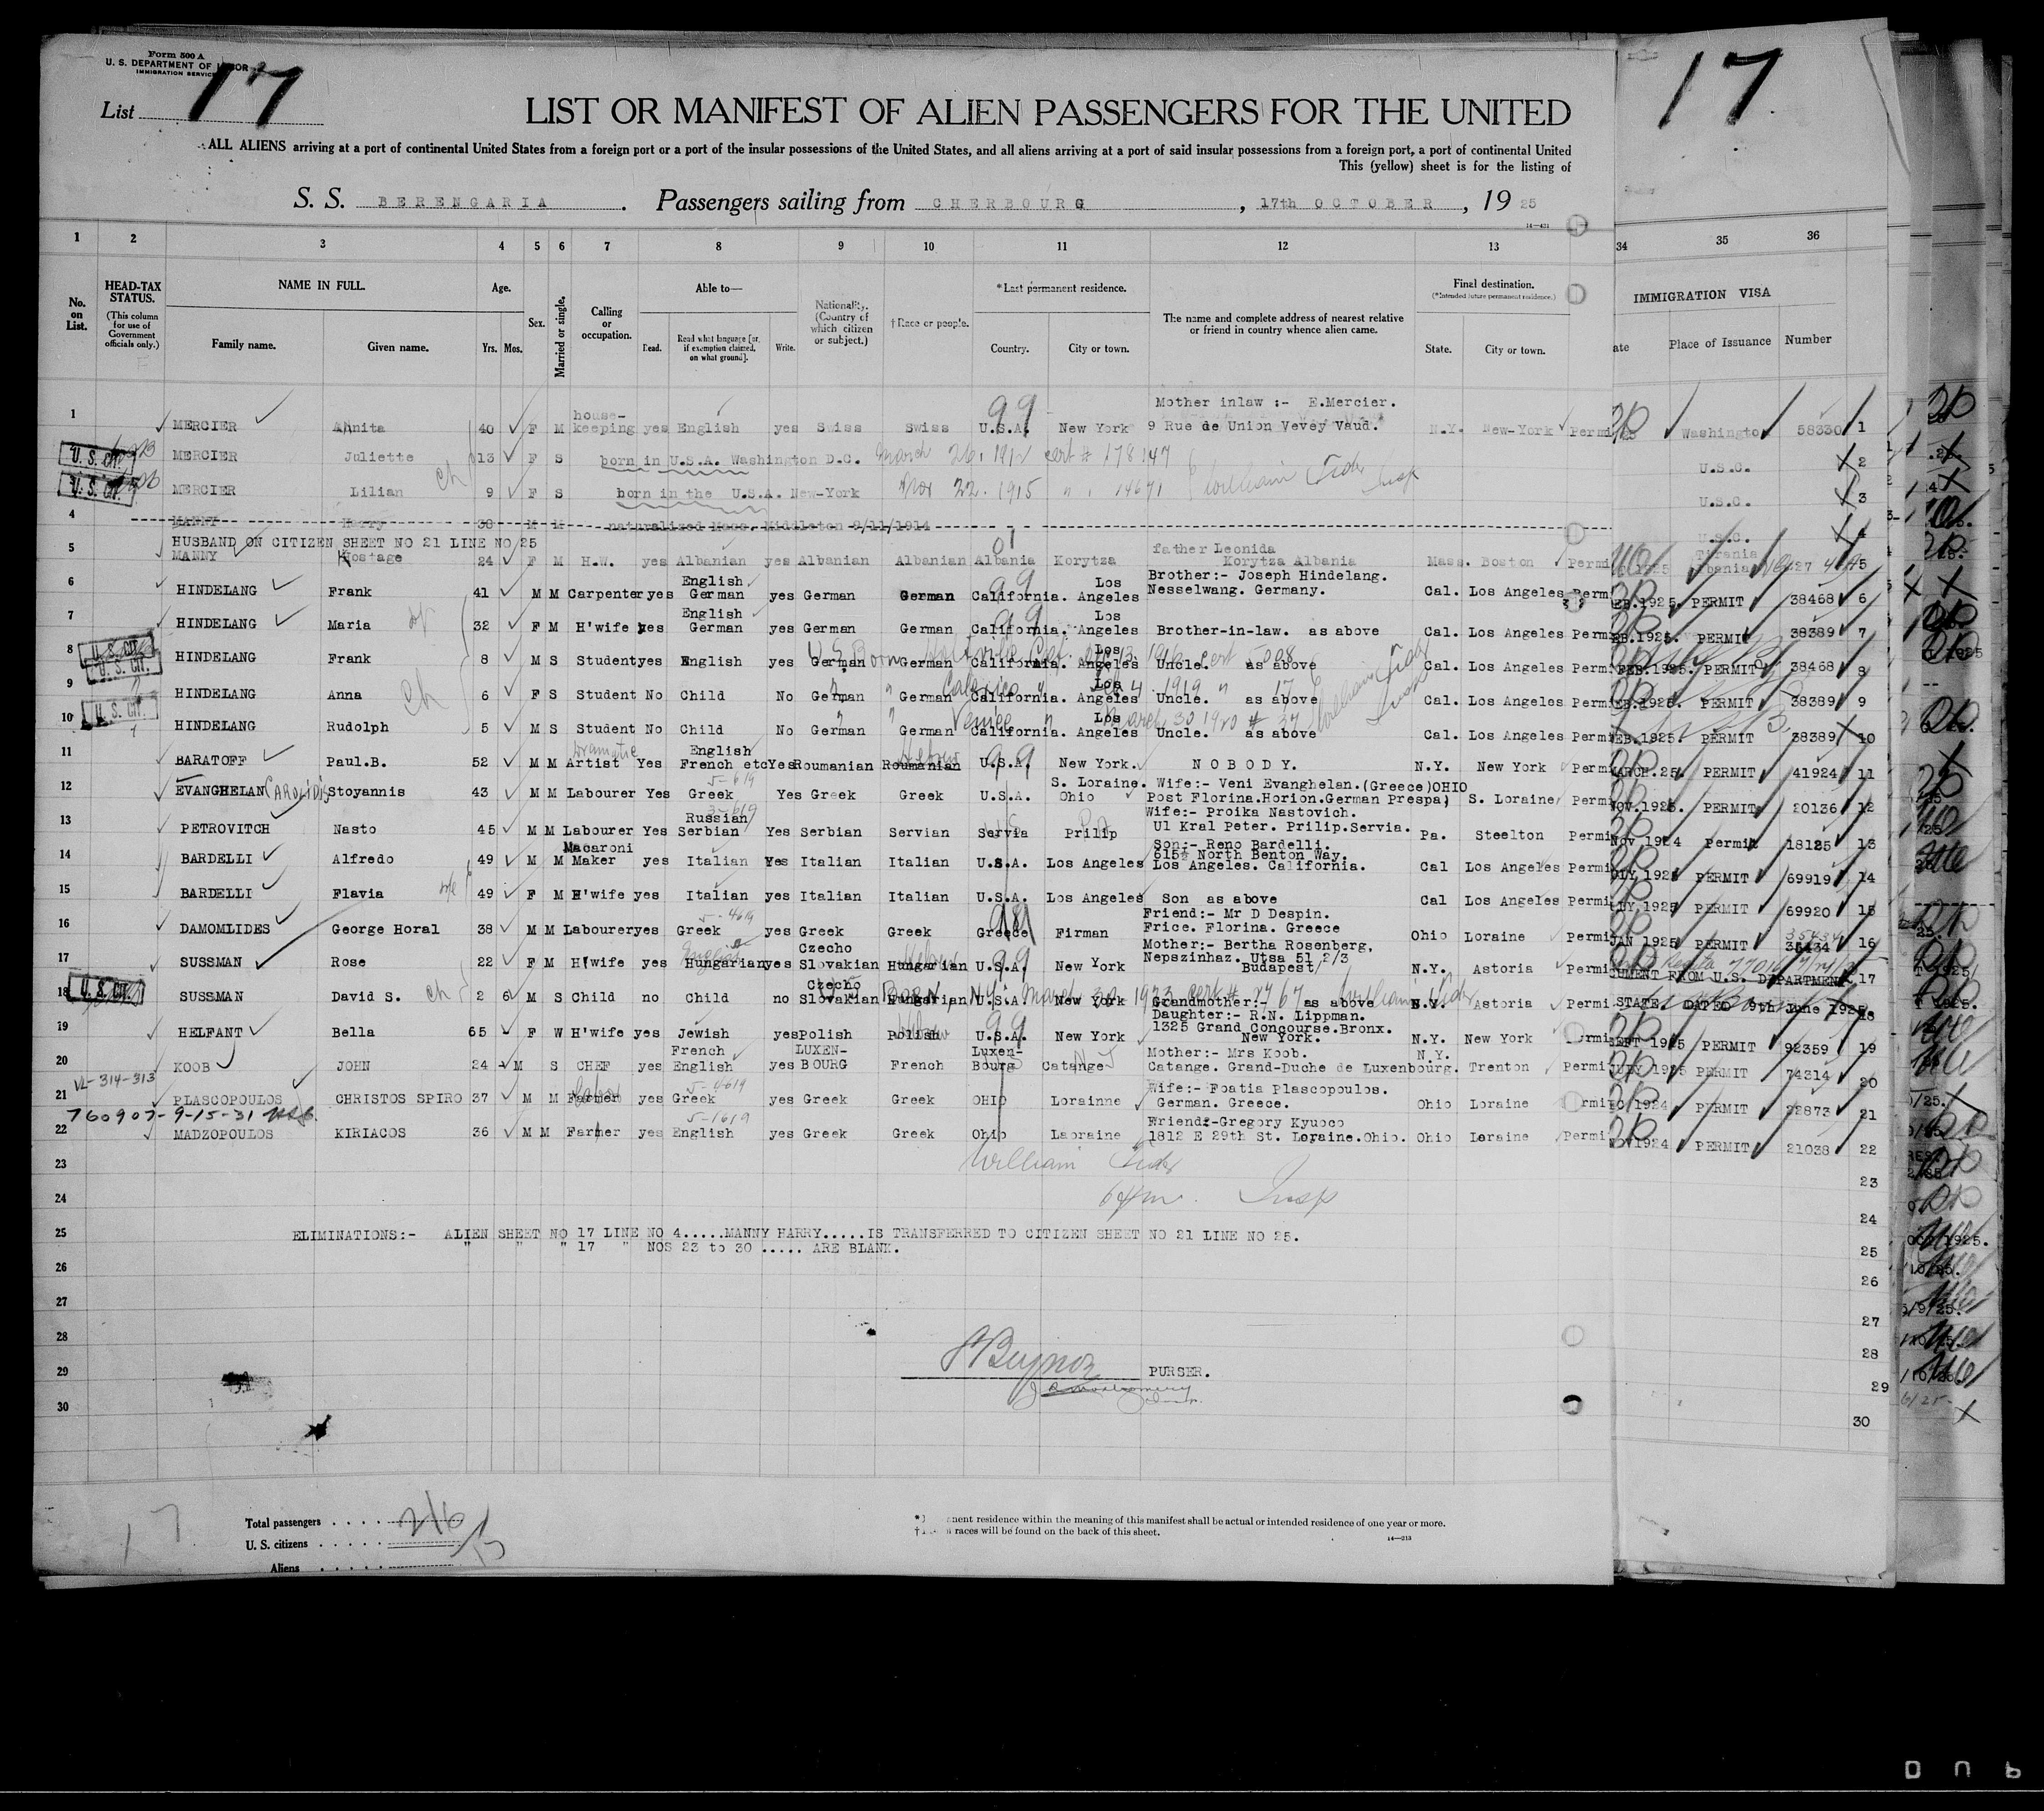 Form 500 A
U. S. DEPARTMENT OF LABOR
IMMIGRATION SERVICE
List 17
17
LIST OR MANIFEST OF ALIEN PASSENGERS FOR THE UNITED
ALL ALIENS arriving at a port of continental United States from a foreign port or a port of the insular possessions of the United States, and all aliens arriving at a port of said insular possessions from a foreign port, a port of continental United
This (yellow) sheet is for the listing of
S. S. BERENGARIA . Passengers sailing from CHERBOURG , 17th OCTOBER , 19 25
1 2 3 4 5 6 7 8 9 10 11 12 13 34 35 36
No. on List.
HEAD-TAX STATUS. (This column for use of Government officials only.)
NAME IN FULL. Family name. Given name.
Age. Yrs. Mos.
Sex.
Married or single.
Calling or occupation.
Able to— Read. Read what language [or, if exemption claimed, on what ground]. Write.
Nationality. (Country of which citizen or subject.)
†Race or people.
*Last permanent residence. Country. City or town.
The name and complete address of nearest relative or friend in country whence alien came.
Final destination. (*Intended future permanent residence.) State. City or town.
IMMIGRATION VISA
ate Place of Issuance Number
1 MERCIER Annita 40 F M house-keeping yes English yes Swiss Swiss U.S.A. New York Mother inlaw :- E.Mercier. 9 Rue de Union Vevey Vaud. N.Y. New-York Permi Washington 58330 1
2 U. S. CIT. MERCIER Juliette 13 F S born in U.S.A. Washington D.C. March 26, 1912 cert # 178147 U.S.C. 2
3 U. S. CIT. MERCIER Lilian 9 F S born in the U.S.A. New-York Nov 22. 1915 " . 14671 William U.S.C. 3
4 MANNY Harry 38 M M naturalized Mass. Middleton 9/11/1914 U.S.C. 4
HUSBAND ON CITIZEN SHEET NO 21 LINE NO 25
5 MANNY Kostage 24 F M H.W. yes Albanian yes Albanian Albanian Albania Korytza father Leonida Korytza Albania Mass. Boston Permi Tirania Albania 5
6 HINDELANG Frank 41 M M Carpenter yes English German yes German German California. Los Angeles Brother:- Joseph Hindelang. Nesselwang. Germany. Cal. Los Angeles Perm EB.1925. PERMIT 38468 6
7 HINDELANG Maria 32 F M H'wife yes English German yes German German California. Los Angeles Brother-in-law. as above Cal. Los Angeles Perm EB.1925. PERMIT 38389 7
8 U. S. CIT. HINDELANG Frank 8 M S Student yes English yes German German California. Los Angeles Uncle. as above Cal. Los Angeles Permi FEB.1925. PERMIT 38468 8
9 U. S. CIT. HINDELANG Anna 6 F S Student No Child No German German California. Los Angeles Uncle. as above Cal. Los Angeles Permi EB.1925. PERMIT 38389 9
10 U. S. CIT. HINDELANG Rudolph 5 M S Student No Child No German German California. Los Angeles Uncle. as above Cal. Los Angeles Permi EB.1925. PERMIT 38389 10
11 BARATOFF Paul.B. 52 M M Dramatic Artist Yes English French etc Yes Roumanian Roumanian U.S.A. New York. NOBODY. N.Y. New York Permi MARCH.25. PERMIT 41924 11
12 EVANGHELAN Stoyannis 43 M M Labourer Yes Greek Yes Greek Greek U.S.A. S. Loraine. Ohio Wife:- Veni Evanghelan.(Greece) Post Florina.Horion.German Prespa) OHIO S. Loraine Permi NOV.1925. PERMIT 20136 12
13 PETROVITCH Nasto 45 M M Labourer Yes Russian Serbian Yes Serbian Servian Servia Prilip Wife:- Proika Nastovich. Ul Kral Peter. Prilip.Servia. Pa. Steelton Permi Nov 1924 Permit 18125 13
14 BARDELLI Alfredo 49 M M Macaroni Maker yes Italian Yes Italian Italian U.S.A. Los Angeles Son:- Reno Bardelli. 615½ North Benton Way. Los Angeles. California. Cal Los Angeles Permi ULY 1925 PERMIT 69919 14
15 BARDELLI Flavia 49 F M H'wife yes Italian yes Italian Italian U.S.A. Los Angeles Son as above Cal Los Angeles Permi ULY,1925 PERMIT 69920 15
16 DAMOMLIDES George Horal 38 M M Labourer yes Greek yes Greek Greek Greece Firman Friend:- Mr D Despin. Frice. Florina. Greece Ohio Loraine Permi JAN 1925 PERMIT 35434 16
17 SUSSMAN Rose 22 F M H'wife yes Hungarian yes Czecho Slovakian Hungarian U.S.A. New York Mother:- Bertha Rosenberg, Nepszinhaz. Utsa 51 2/3 Budapest N.Y. Astoria Permi CHMENT FROM U.S. DEPARTMENT 17
18 U. S. CIT. SUSSMAN David S. 2 6 M S Child no Child no Czecho Slovakian Hungarian U.S.A. New York Grandmother:- as above N.Y. Astoria Permi STATE. DATED 9th June 1925. 18
19 HELFANT Bella 65 F W H'wife yes Jewish yes Polish Polish U.S.A. New York Daughter:- R.N. Lippman. 1325 Grand Concourse.Bronx. New York. N.Y. New York ermi SEPT 1925 PERMIT 92359 19
20 KOOB JOHN 24 M S CHEF yes French English yes LUXEN-BOURG French Luxen-Bourg Catange Mother:- Mrs Koob. Catange. Grand-Duche de Luxenbourg. N.Y. Trenton Permi JULY 1925 PERMIT 74314 20
VL-314-313
21 PLASCOPOULOS CHRISTOS SPIRO 37 M M Farmer yes Greek yes Greek Greek OHIO Lorainne Wife:- Foatia Plascopoulos. German. Greece. Ohio Loraine ermi 1924 PERMIT 22873 21
760907-9-15-31
22 MADZOPOULOS KIRIACOS 36 M M Farmer yes English yes Greek Greek Ohio Laoraine Friend:-Gregory Kyuoco 1812 E 29th St. Loraine.Ohio. Ohio Loraine Permi NOV1924 PERMIT 21038 22
23 William 23
24 Insp 24
25 ELIMINATIONS:- ALIEN SHEET NO 17 LINE NO 4.....MANNY HARRY.....IS TRANSFERRED TO CITIZEN SHEET NO 21 LINE NO 25. 25
" " " 17 " NOS 23 to 30 ..... ARE BLANK.
26 26
27 27
28 28
29 PURSER. 29
30 30
Total passengers . . . .
U. S. citizens . . . . .
Aliens . . . . .
17
anent residence within the meaning of this manifest shall be actual or intended residence of one year or more.
races will be found on the back of this sheet.